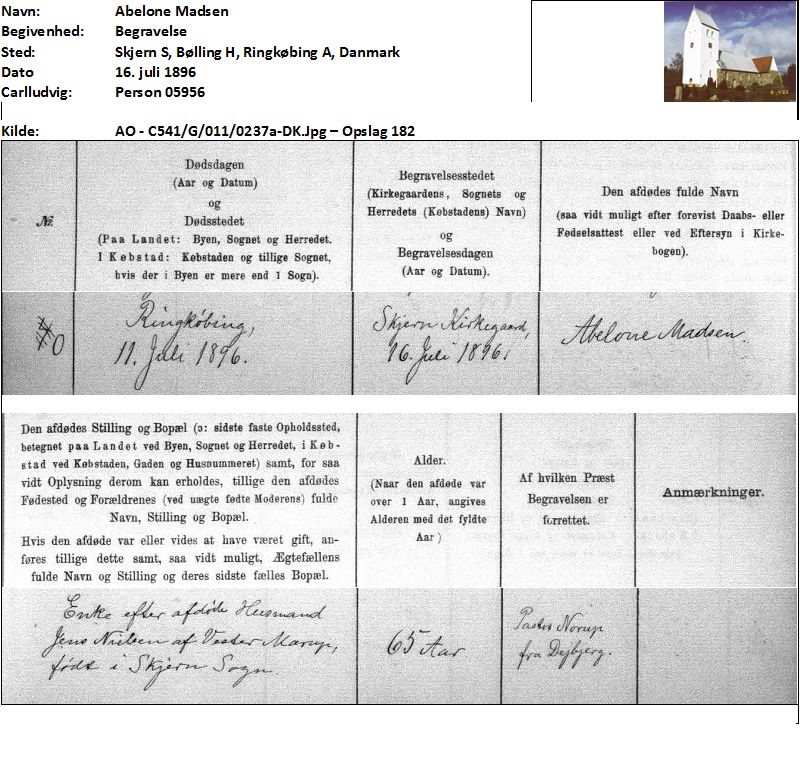 Navn: Abelone Madsen
Begivenhed: Begravelse
Sted: Skjern S, Bølling H, Ringkøbing A, Danmark
Dato 16. juli 1896
Carlludvig: Person 05956
Kilde: AO - C541/G/011/0237a-DK.Jpg – Opslag 182
№.
Dødsdagen
(Aar og Datum)
og
Dødsstedet
(Paa Landet: Byen, Sognet og Herredet.
I Købstad: Købstaden og tillige Sognet,
hvis der i Byen er mere end 1 Sogn).
Begravelsesstedet
(Kirkegaardens, Sognets og
Herredets (Købstadens) Navn)
og
Begravelsesdagen
(Aar og Datum).
Den afdødes fulde Navn
(saa vidt muligt efter forevist Daabs- eller
Fødselsattest eller ved Eftersyn i Kirke-
bogen).
Ringkøbing,
11. Juli 1896.
Skjern Kirkegaard,
16. Juli 1896.
Abelone Madsen.
Den afdødes Stilling og Bopæl (ɔ: sidste faste Opholdssted,
betegnet paa Landet ved Byen, Sognet og Herredet, i Køb-
stad ved Købstaden, Gaden og Husnummeret) samt, for saa
vidt Oplysning derom kan erholdes, tillige den afdødes
Fødested og Forældrenes (ved uægte fødte Moderens) fulde
Navn, Stilling og Bopæl.
Hvis den afdøde var eller vides at have været gift, an-
føres tillige dette samt, saa vidt muligt, Ægtefællens
fulde Navn og Stilling og deres sidste fælles Bopæl.
Alder.
(Naar den afdøde var
over 1 Aar, angives
Alderen med det fyldte
Aar)
Af hvilken Præst
Begravelsen er
forrettet.
Anmærkninger.
Enke efter afdøde Husmand
Jens Nielsen af Vester Marup,
født i Skjern Sogn.
65 Aar
Pastor Norup
fra Dejbjerg.